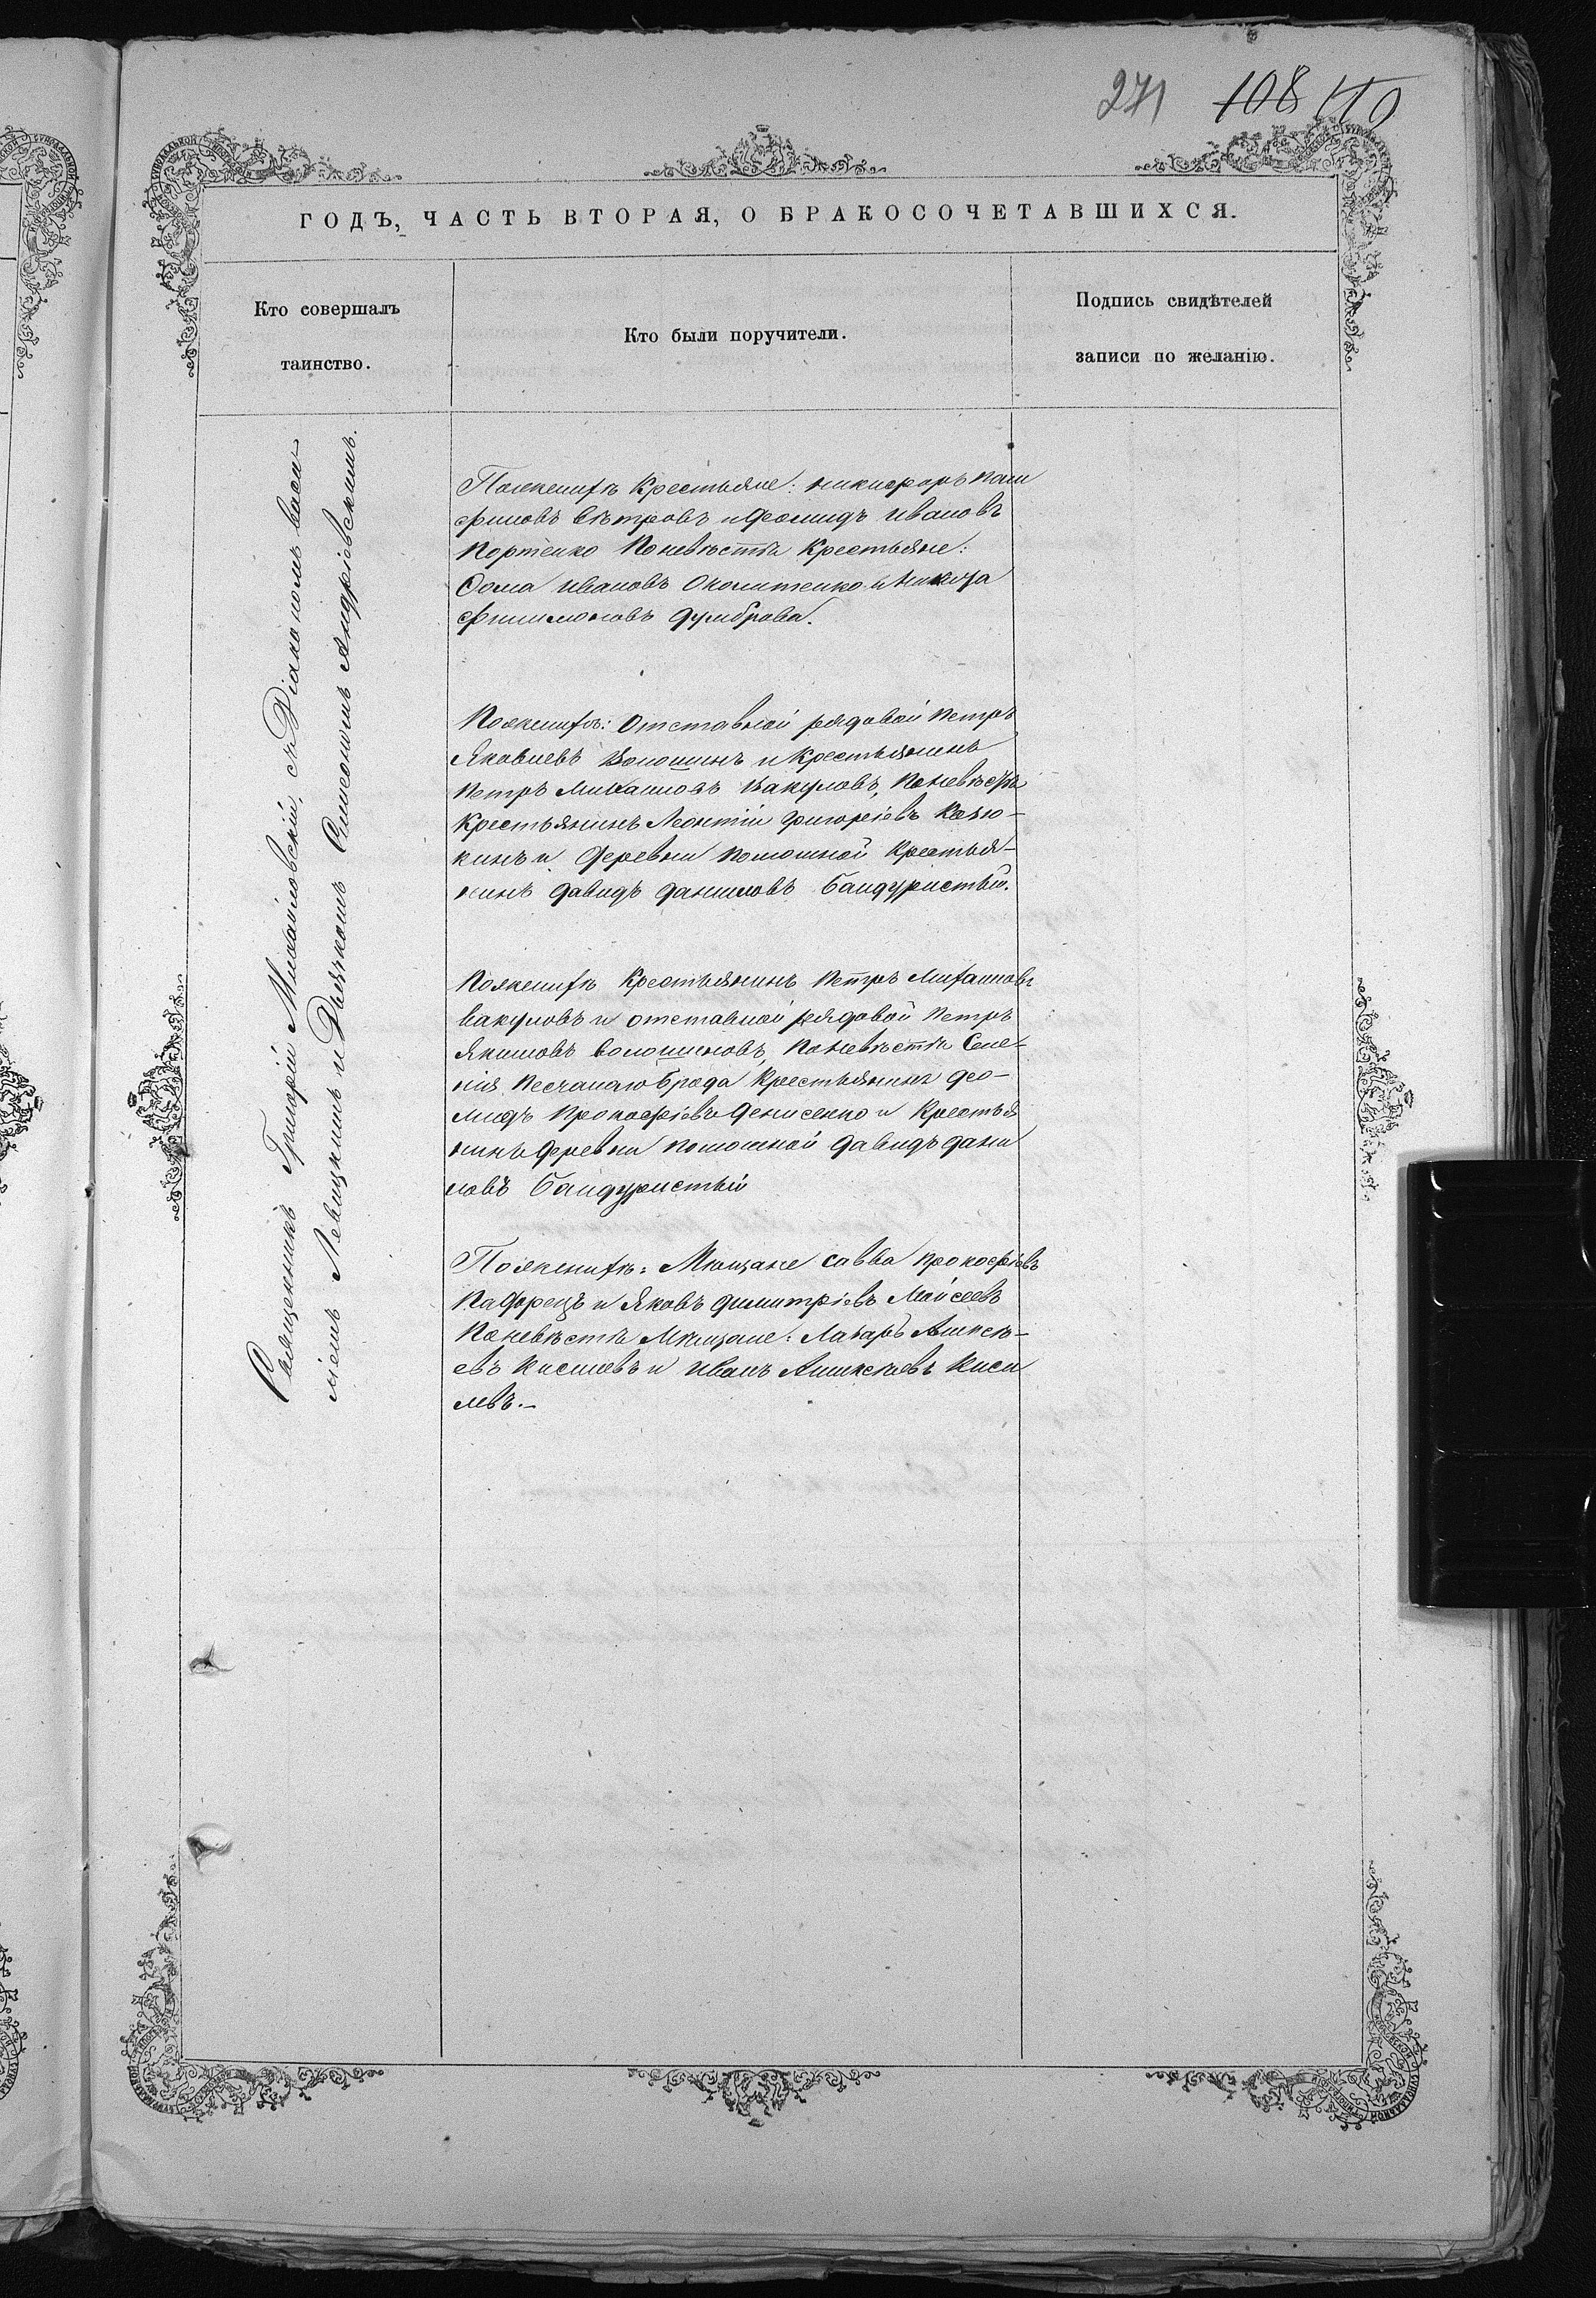 271 108 110
ГОДЪ, ЧАСТЬ ВТОРАЯ, О БРАКОСОЧЕТАВШИХСЯ.
Кто совершалъ
таинство.
Кто были поручители.
Подпись свидѣтелей
записи по желанію.
Священникъ Григорій Михайловскій, съ Діакономъ Васи
ліемъ Левицкимъ и Дьячкомъ Симеономъ Андріевскимъ.
По женихѣ Крестьяне: Никифоръ Пам
филовъ Вѣтровъ и Феомидъ Ивановъ
Портенко По невѣстѣ Крестьяне:
Фома Ивановъ и Никита
Филимоновъ Думброва.
По женихѣ: Отставной рядовой Петръ
Яковлевъ Волошинъ и Крестьянинъ
Петръ Михаиловъ Вакуловъ, По невѣстѣ
Крестьянинъ Леонтій Григоріевъ Козю-
кинъ и Деревни Помошной Крестья-
нинъ Давидъ Даниловъ Бандуристый.
По женихѣ Крестьянинъ Петръ Михаиловъ
Вакуловъ и отставной рядовой Петръ
Якимовъ Волошиновъ, По невѣстѣ Селе-
нія Песчанаго Брода Крестьянинъ Део-
мидъ Прокофіевъ Денисенко и Крестья
нинъ Деревни Помошной Давидъ Дани
ловъ Бандуристый
По женихѣ: Мѣщане Савва Прокофіевъ
и Яковъ Димитріевъ Моисеевъ
По невѣстѣ Мѣщане: Лазарь Алексѣ-
евъ Киселевъ и Иванъ Алексѣевъ Кисе
левъ.-